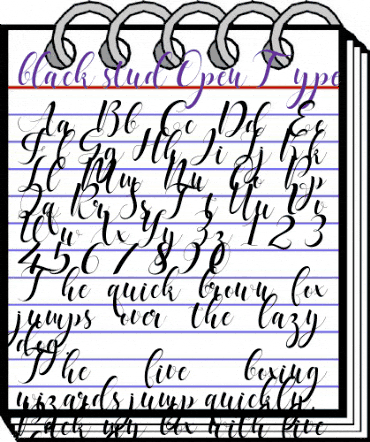 black stud Open Type
Aa Bb Cc Dd Ee
Ff Gg Hh Ii Jj Kk
Ll Mm Nn Oo Pp
Qq Rr Ss Tt Uu Vv
Ww Xx Yy Zz 1 2 3
4 5 6 7 8 9 0
The quick brown fox
jumps over the lazy
dog.
The five boxing
wizards jump quickly.
Pack my box with five